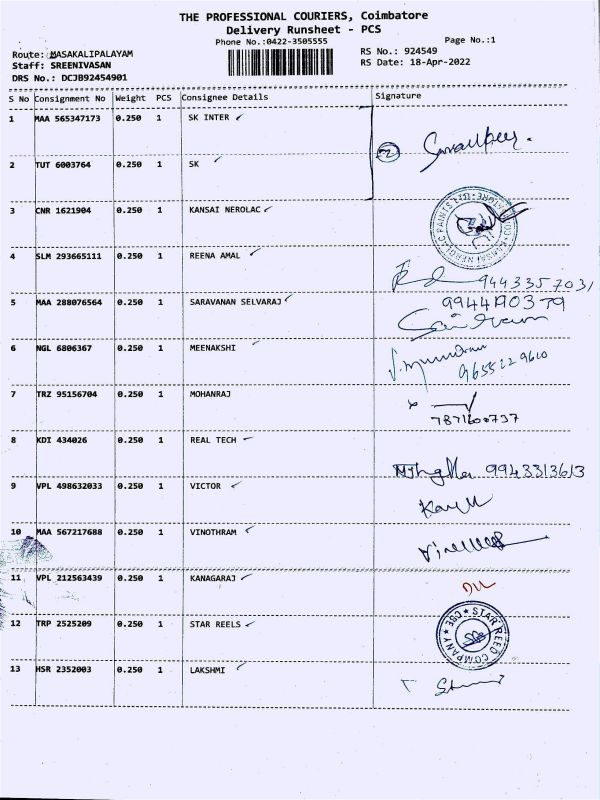 THE PROFESSIONAL COURIERS, Coimbatore
Delivery Runsheet - PCS
Phone No.:0422-3505555
Page No.:1
Route: MASAKALIPALAYAM
RS No.: 924549
Staff: SREENIVASAN
RS Date: 18-Apr-2022
DRS No.: DCJB92454901
S No Consignment No Weight PCS Consignee Details Signature
1 MAA 565347173 0.250 1 SK INTER
2
2 TUT 6003764 0.250 1 SK
3 CNR 1621904 0.250 1 KANSAI NEROLAC
KANSAI NEROLAC PAINTS LTD.
4 SLM 293665111 0.250 1 REENA AMAL
9443357031
5 MAA 288076564 0.250 1 SARAVANAN SELVARAJ
9944190379
6 NGL 6806367 0.250 1 MEENAKSHI
9655229610
7 TRZ 95156704 0.250 1 MOHANRAJ
7871600737
8 KDI 434026 0.250 1 REAL TECH
9943313613
9 VPL 498632033 0.250 1 VICTOR
10 MAA 567217688 0.250 1 VINOTHRAM
11 VPL 212563439 0.250 1 KANAGARAJ
12 TRP 2525209 0.250 1 STAR REELS
STAR REED COMPANY CBE
13 HSR 2352003 0.250 1 LAKSHMI